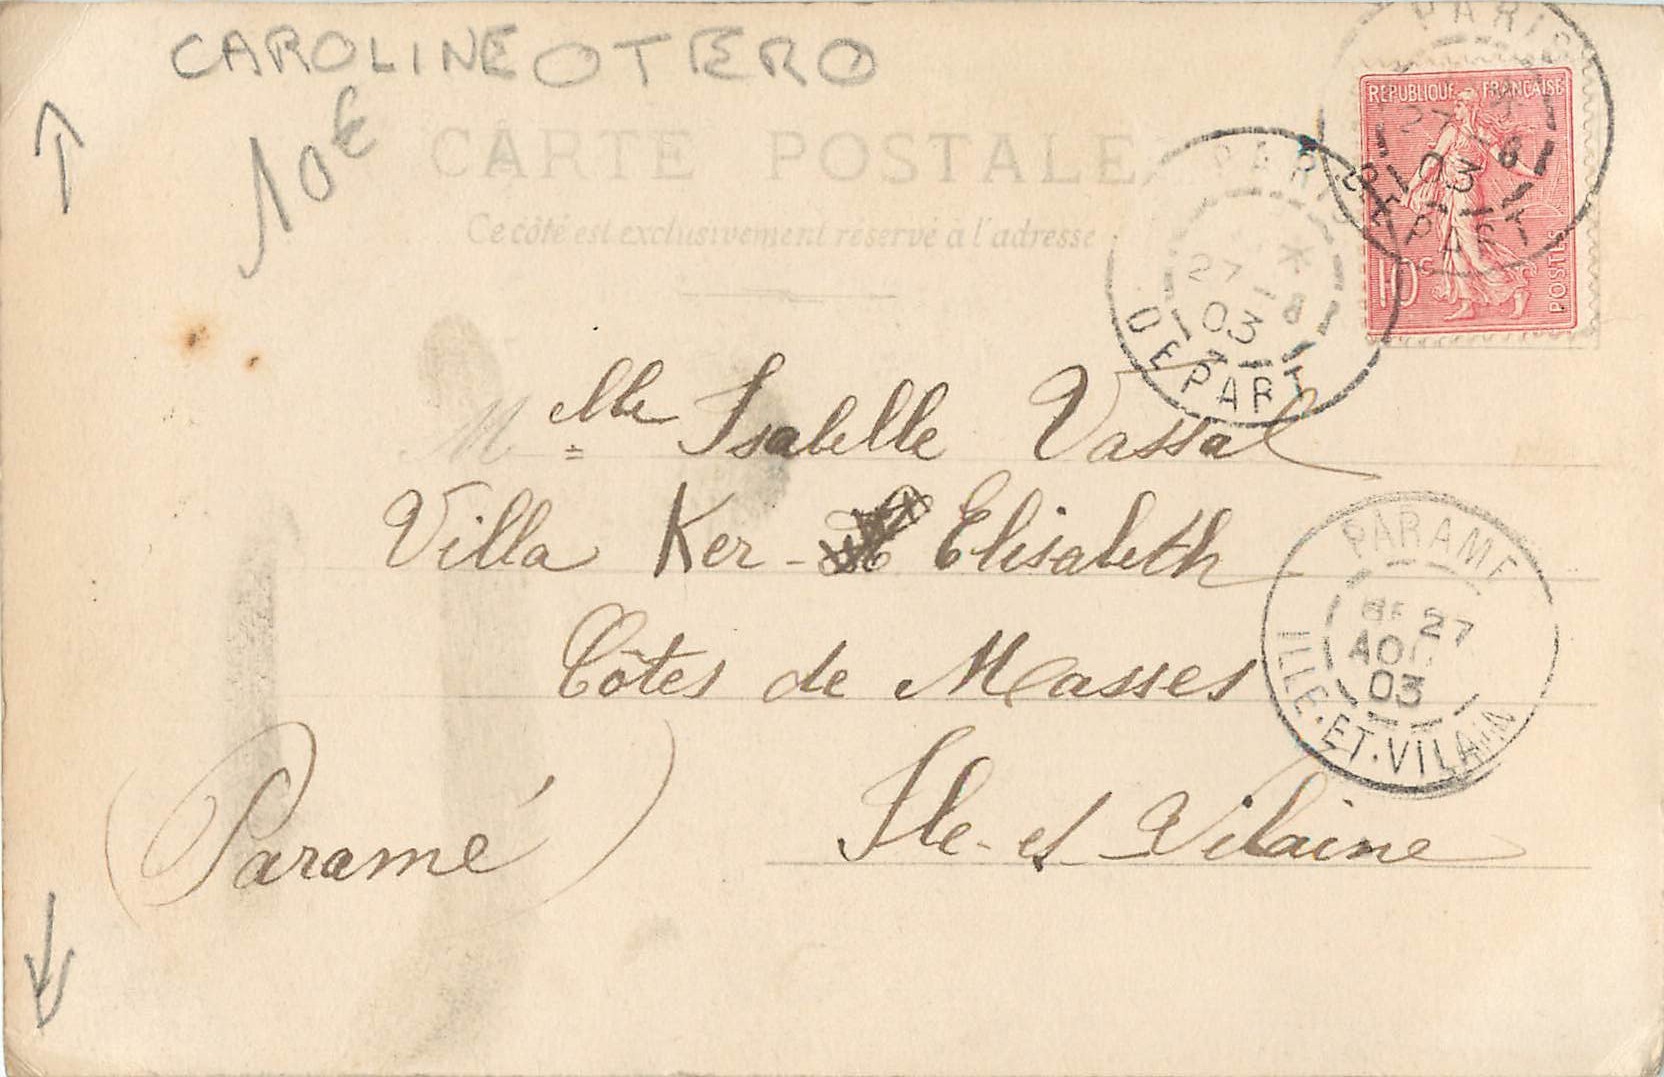 CAROLINE OTERO
10€
CARTE POSTALE
Ce côté est exclusivement réservé à l'adresse
REPUBLIQUE FRANÇAISE
10c
POSTES
PARIS
27 - 8
03
DEPART
PARIS
27 - 8
03
DEPART
Melle Isabelle Vassal
Villa Ker - Elisabeth
Côtes de Masses
(Paramé) Ile-et-Vilaine
PARAME
8E 27
AOUT
03
ILLE-ET-VILAINE